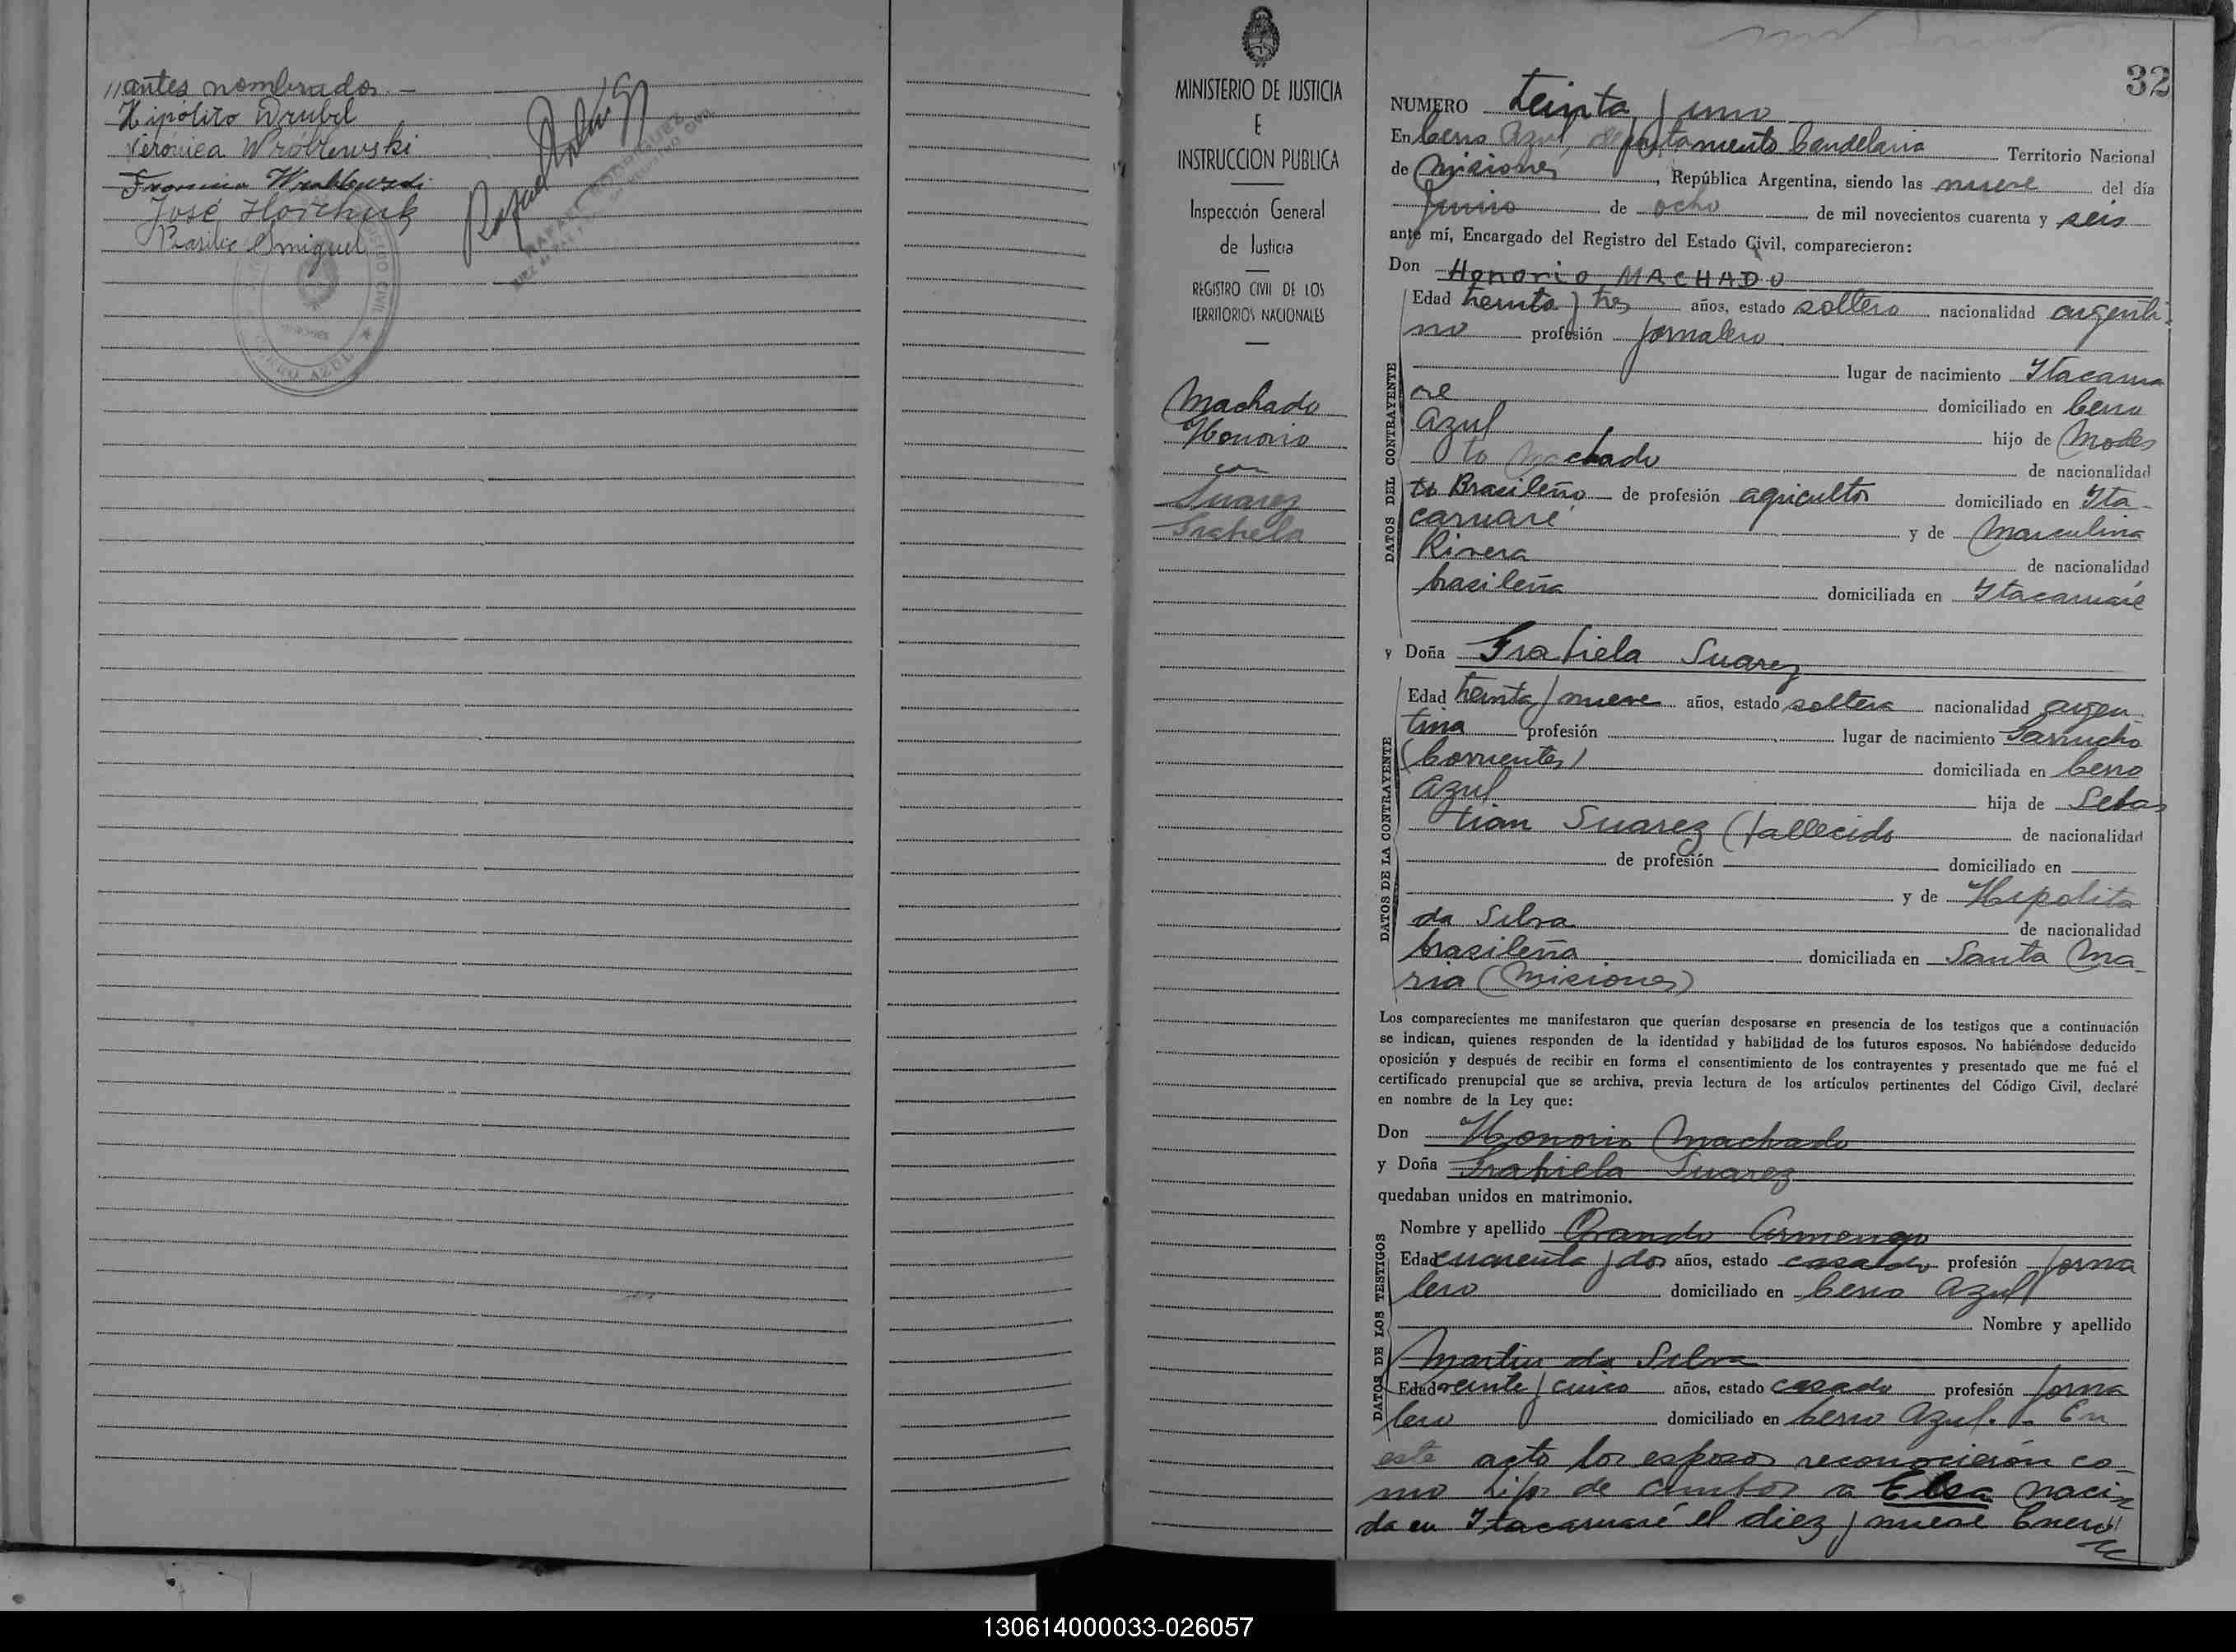 //antes nombrados.-
Hipólito Wrubel
Verónica Wróblewski
José Horchuk
Basilio Smiguel
Rafael Rodríguez
RAFAEL RODRIGUEZ
CERRO AZUL
MINISTERIO DE JUSTICIA
E
INSTRUCCION PUBLICA
Inspección General
de Justicia
REGISTRO CIVIL DE LOS
TERRITORIOS NACIONALES
Machado
Honorio
con
Suarez
Grabiela
32
NUMERO treinta y uno
En Cerro Azul, departamento Candelaria Territorio Nacional
de Misiones, República Argentina, siendo las nueve del día
Junio de ocho de mil novecientos cuarenta y seis
ante mí, Encargado del Registro del Estado Civil, comparecieron:
Don Honorio MACHADO
DATOS DEL CONTRAYENTE
Edad treinta y tres años, estado soltero nacionalidad argenti-
no profesión jornalero
lugar de nacimiento Itacarua
re domiciliado en Cerro
Azul hijo de Modes
to Machado de nacionalidad
Brasileño de profesión agricultor domiciliado en Ita-
caruaré y de Marculina
Rivera de nacionalidad
brasileña domiciliada en Itacaruaré
y Doña Grabiela Suarez
DATOS DE LA CONTRAYENTE
Edad treinta y nueve años, estado soltera nacionalidad argen-
tina profesión lugar de nacimiento Garruchos
(Corrientes) domiciliada en Cerro
Azul hija de Sebas
tian Suarez (fallecido de nacionalidad
de profesión domiciliado en
y de Hipolita
da Silva de nacionalidad
brasileña domiciliada en Santa Ma-
ria (Misiones)
Los comparecientes me manifestaron que querían desposarse en presencia de los testigos que a continuación
se indican, quienes responden de la identidad y habilidad de los futuros esposos. No habiéndose deducido
oposición y después de recibir en forma el consentimiento de los contrayentes y presentado que me fué el
certificado prenupcial que se archiva, previa lectura de los artículos pertinentes del Código Civil, declaré
en nombre de la Ley que:
Don Honorio Machado
y Doña Grabiela Suarez
quedaban unidos en matrimonio.
DATOS DE LOS TESTIGOS
Nombre y apellido
Edad cuarenta y dos años, estado casado profesión jorna
lero domiciliado en Cerro Azul
Nombre y apellido
Martin da Silva
Edad veinte y cinco años, estado casado profesión jorna
lero domiciliado en Cerro Azul.- En
este acto los esposos reconocierón co-
mo hijos de ambos a Elsa naci-
da en Itacaruaré el diez y nueve Enero//
130614000033-026057